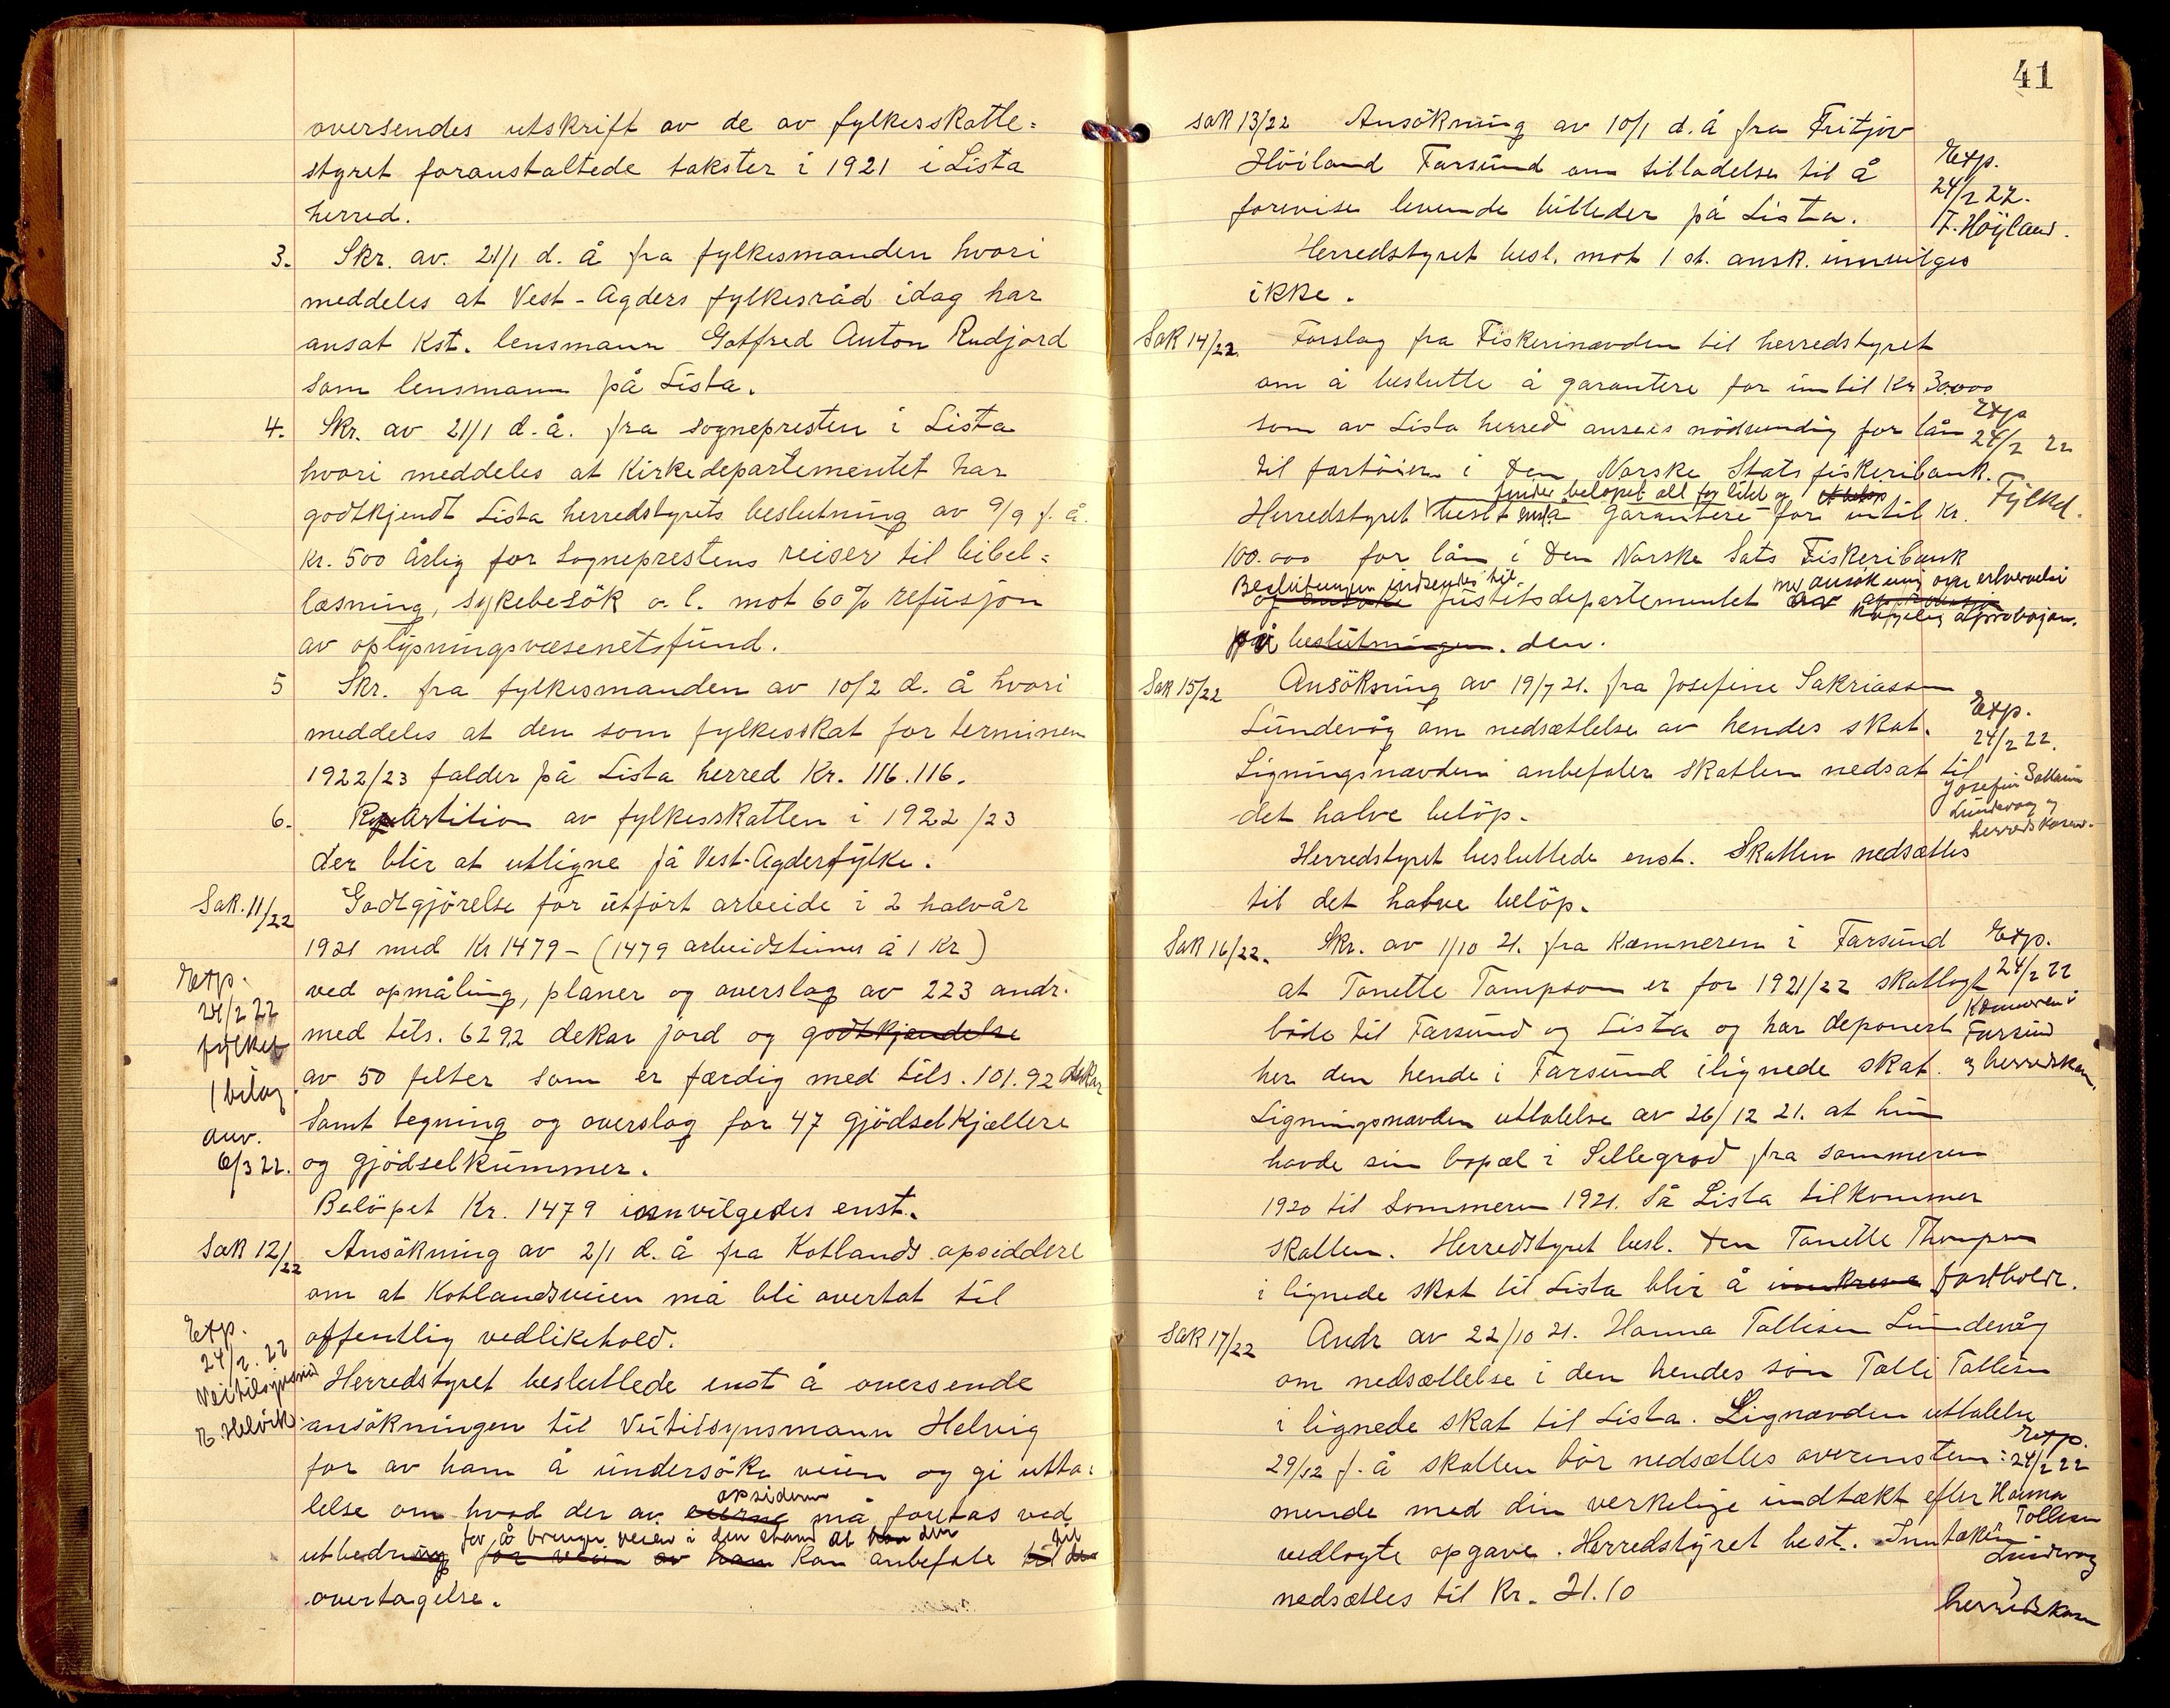 oversendes utskrift av de av fylkesskatte=
styret foranstaltede takster i 1921 i Lista
herred.
3. Skr. av. 21/1 d. å fra fylkesmanden hvori
meddeles at Vest-Agders fylkesråd idag har
ansat Kst. lensmann Gotfred Anton Rudjord
som lensmann på Lista.
4. Skr. av 21/1 d. å. fra sognepresten i Lista
hvori meddeles at Kirkedepartementet har
godtkjendt Lista herredstyrets beslutning av 9/9 f. å.
kr. 500 årlig for sogneprestens reiser til bibel=
læsning, sykebesök o. l. mot 60% refusjon
av oplysningsvæsenetsfund.
5 Skr. fra fylkesmanden av 10/2 d. å hvori
meddeles at den som fylkesskat for terminen
1922/23 falder på Lista herred Kr. 116.116.
6. Repartition av fylkesskatten i 1922/23
der blir at utligne på Vest-Agderfylke.
Sak. 11/22 Godtgjörelse for utfört arbeide i 2 halvår
1921 med Kr 1479 - (1479 arbeidstimer á 1 Kr)
Exp.
24/2 22
fylket
1 bilag
anv.
6/3 22.
ved opmåling, planer og overslag av 223 andr.
med tils. 6292 dekar jord og godtkjendelse
av 50 felter som er færdig med tils. 101.92 dekar
samt tegning og overslag for 47 gjödselkjællere
og gjödselkummer.
Belöpet Kr. 1479 innvilgedes enst.
Sak 12/22 Ansökning av 2/1 d. å fra Kotlands opsiddere
om at Kotlandsveien må bli overtat til
offentlig vedlikehold.
Exp.
24/2. 22
Veitilsynsmand
E. Helvik
Herredstyret besluttede enst å oversende
ansökningen til Veitilsynsmann Helvig
for av ham å undersöke veien og gi utta=
lelse om hvad der av eierne opsiderne må foretas ved
for å bringe veien i den stand at han den
utbedring for veien av ham kan anbefale til den til
overtagelse.
41
Sak 13/22 Ansökning av 10/1 d. å fra Fritjov
Höiland Farsund om tilladelse til å
forevise levende billeder på Lista.
Exp.
24/2 22.
F. Höyland.
Herredstyret besl. mot 1 st. ansk. innvilges
ikke.
Sak 14/22. Forslag fra Fiskerinævden til herredstyret
om å beslutte å garantere for inntil Kr 30.000
som av Lista herred ansees nödvendig for lån
til fartöier i Den Norske Stats fiskeribank.
Exp
24/2 22
Fylket.
finder belöpet alt for litet og et belöp
Herredstyret besl enst å garantere for intil Kr.
100.000 for lån i Den Norske Sats Fiskeribank
Beslutningen indsendes til med ansökning om erhvervelse
og ansöke Justitsdepartementet av approbasjon Kongelig approbasjon.
på beslutningen. den.
Sak 15/22 Ansökning av 19/7 21. fra Josefine Sakriassen
Lundevåg om nedsættelse av hendes skat.
Ligningsnævden anbefaler skatten nedsat til
det halve belöp.
Exp.
24/2 22.
Josefine
Lundevåg og
herredskassen.
Herredstyret besluttede enst. Skatten nedsættes
til det halve belöp.
Sak 16/22. Skr. av 1/10 21. fra Kæmneren i Farsund
at Tanette Tompson er for 1921/22 skatlagt
både til Farsund og Lista og har deponert
her den hende i Farsund ilignede skat.
Exp.
24/2 22
Kæmneren i
Farsund
og herredskas.
Ligningsnævden uttalelse av 26/12 21. at hun
havde sin bopæl i Sellegrod fra sommeren
1920 til sommeren 1921. Så Lista tilkommer
skatten. Herredstyret besl. Den Tanette Thompson
i lignede skat til Lista blir å innkreve fastholde.
Sak 17/22 Andr av 22/10 21. Hanna Tallisen Lundevåg
om nedsættelse i den hendes sön Talli Tallisen
i lignede skat til Lista. Lignævden uttalelse
29/12 f. å skatten bör nedsættes overenstem=
mende med din verkelige indtækt efter
vedlagte opgave. Herredstyret best. Inntækten
nedsættes til Kr. 21.10
Exp.
24/2 22
Hanna
Tollisen
Lundevåg
herredskassen